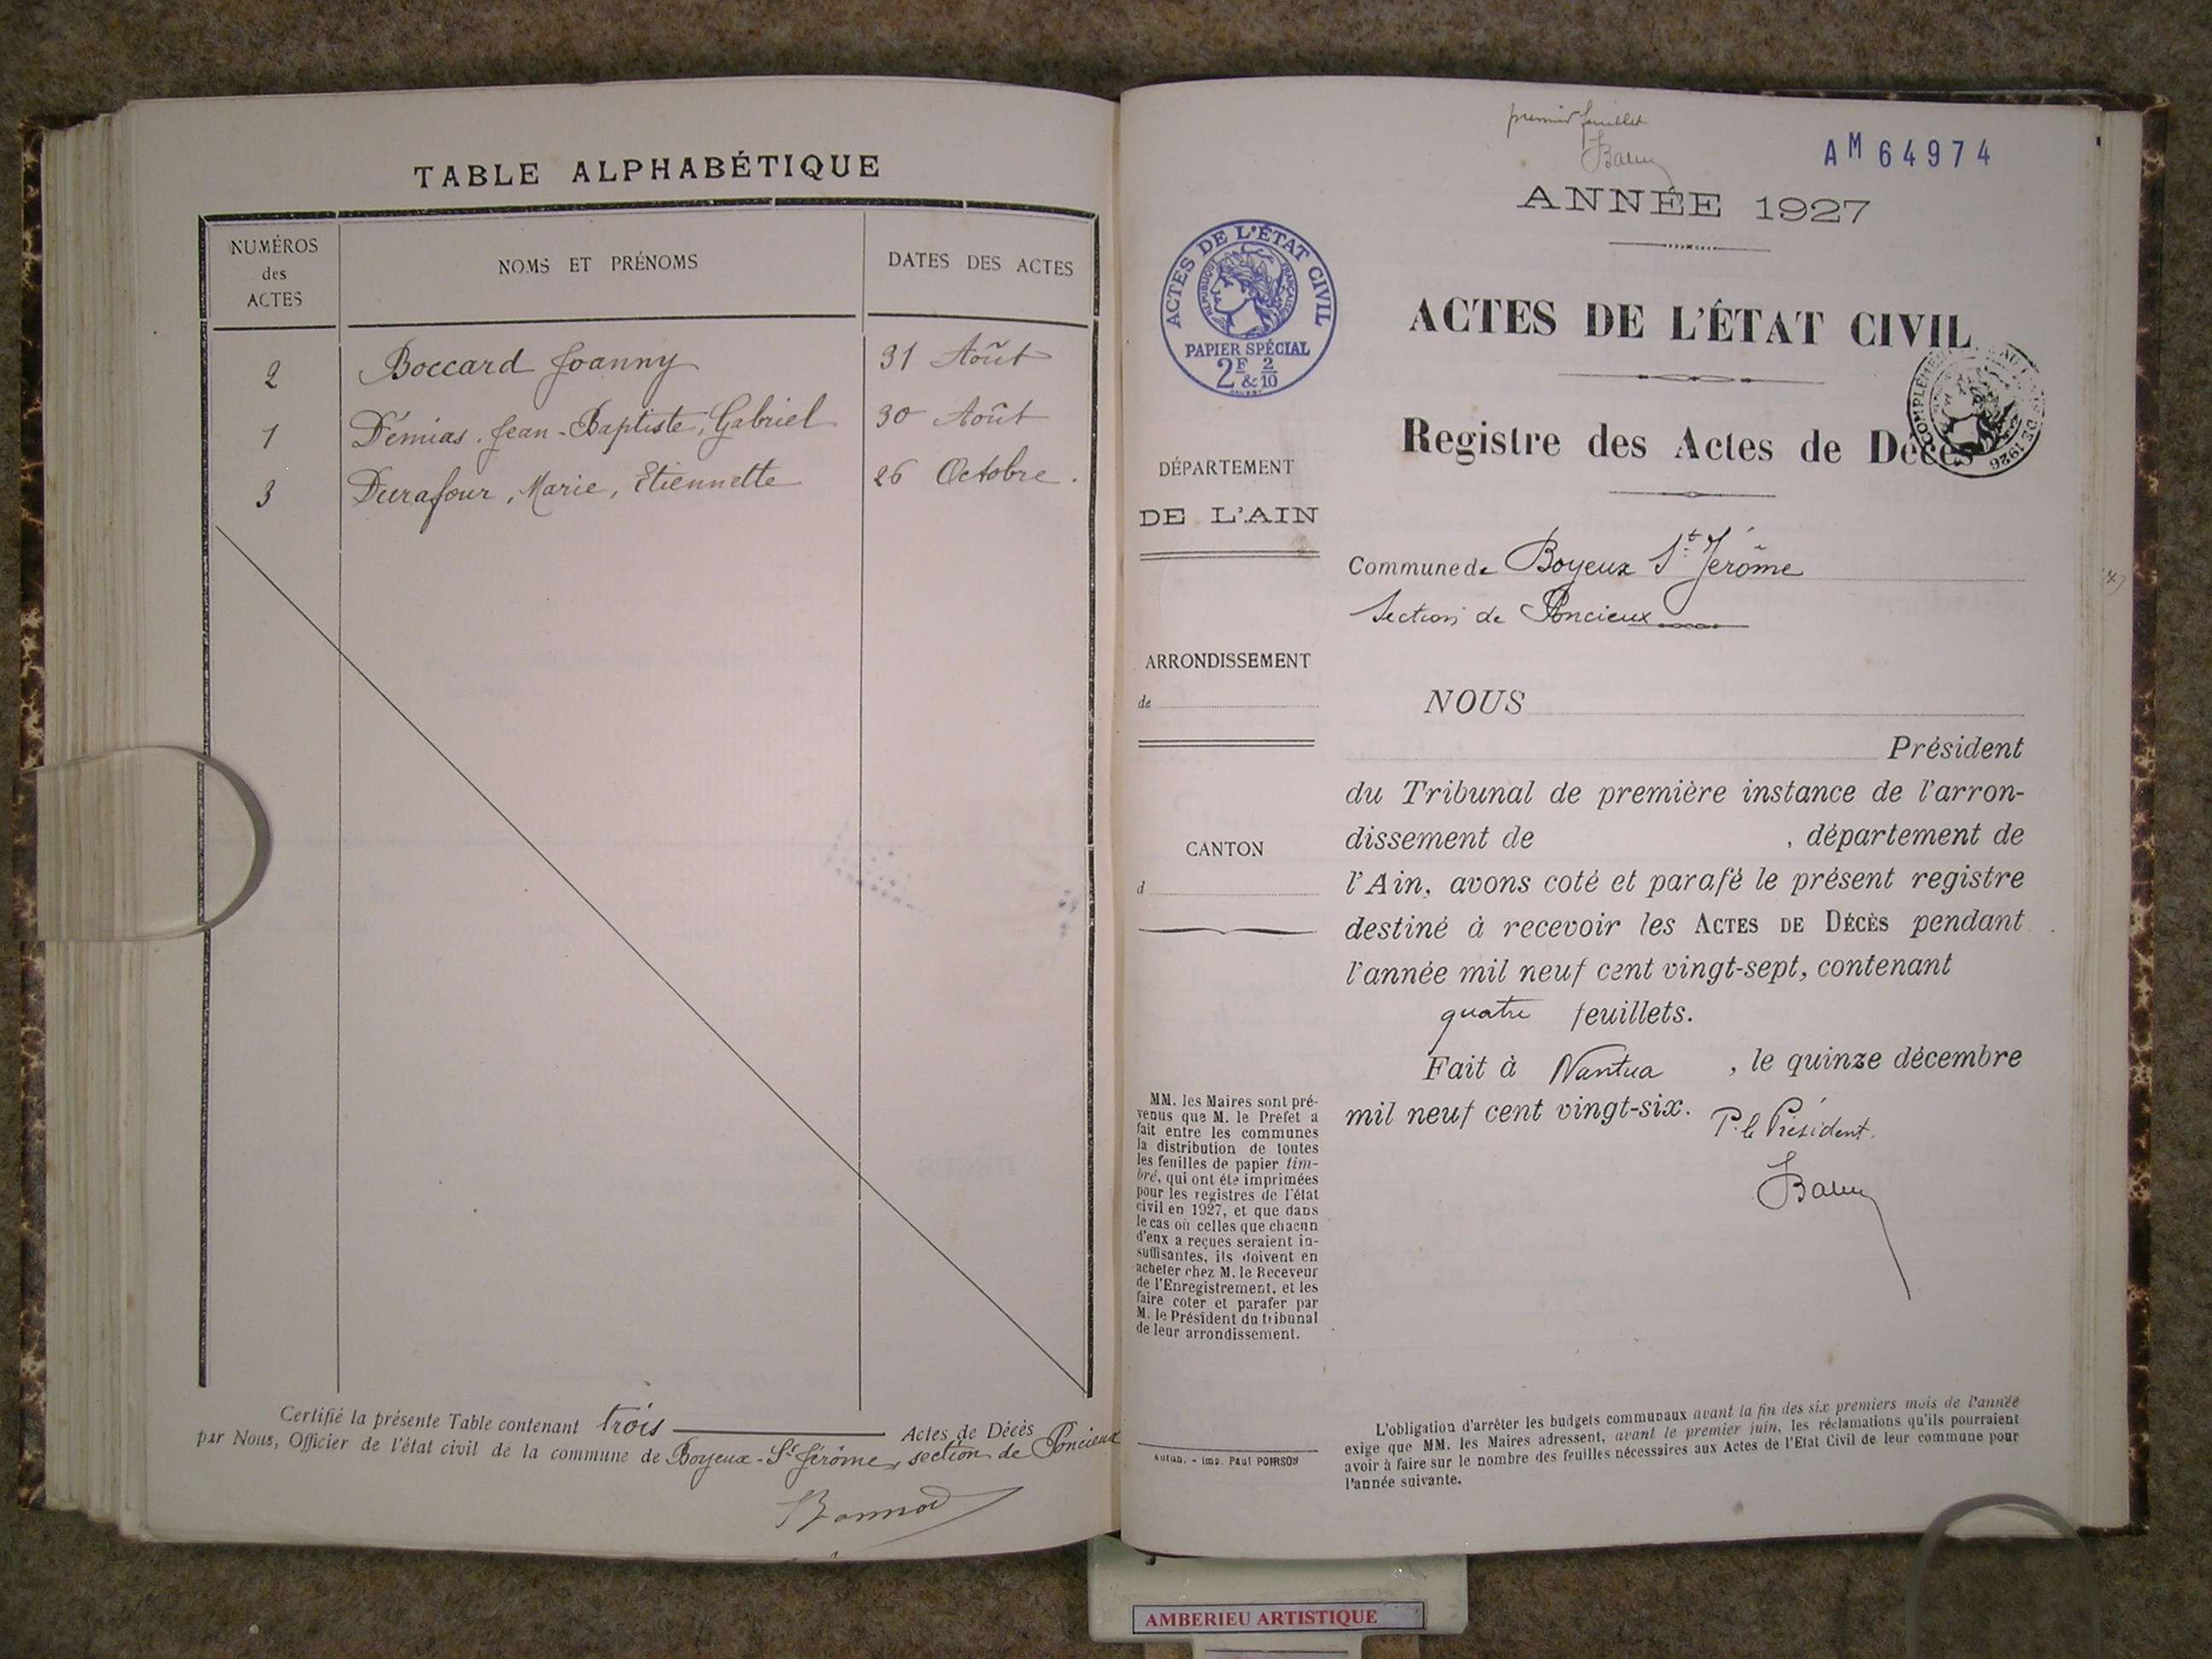 TABLE ALPHABÉTIQUE
NUMÉROS
des
ACTES
NOMS ET PRÉNOMS
DATES DES ACTES
2 Boccard Joanny 31 Août
1 Démias, Jean-Baptiste, Gabriel 30 Août
3 Durafour, Marie, Etiennette 26 Octobre.
Certifié la présente Table contenant trois Actes de Décès
par Nous, Officier de l'état civil de la commune de Boyeux-St Jérôme, section de Poncieux
premier feuillet
AM 64974
ANNÉE 1927
ACTES DE L'ÉTAT CIVIL
RÉPUBLIQUE FRANÇAISE
PAPIER SPÉCIAL
2F & 2/10
ACTES DE L'ÉTAT CIVIL
Registre des Actes de Décès
DÉPARTEMENT
DE L'AIN
Commune de Boyeux St Jérôme
Section de Poncieux
ARRONDISSEMENT
de
NOUS
Président
du Tribunal de première instance de l'arron-
dissement de , département de
CANTON
d
l'Ain, avons coté et parafé le présent registre
destiné à recevoir les ACTES DE DÉCÈS pendant
l'année mil neuf cent vingt-sept, contenant
quatre feuillets.
Fait à Nantua , le quinze décembre
mil neuf cent vingt-six.
P. le Président.
MM. les Maires sont pré-
venus que M. le Préfet a
fait entre les communes
la distribution de toutes
les feuilles de papier tim-
bré, qui ont été imprimées
pour les registres de l'état
civil en 1927, et que dans
le cas où celles que chacun
d'eux a reçues seraient in-
suffisantes, ils doivent en
acheter chez M. le Receveur
de l'Enregistrement, et les
faire coter et parafer par
M. le Président du tribunal
de leur arrondissement.
Autun. - Imp. Paul POIRSON
L'obligation d'arrêter les budgets communaux avant la fin des six premiers mois de l'année
exige que MM. les Maires adressent, avant le premier juin, les réclamations qu'ils pourraient
avoir à faire sur le nombre des feuilles nécessaires aux Actes de l'Etat Civil de leur commune pour
l'année suivante.
AMBERIEU ARTISTIQUE